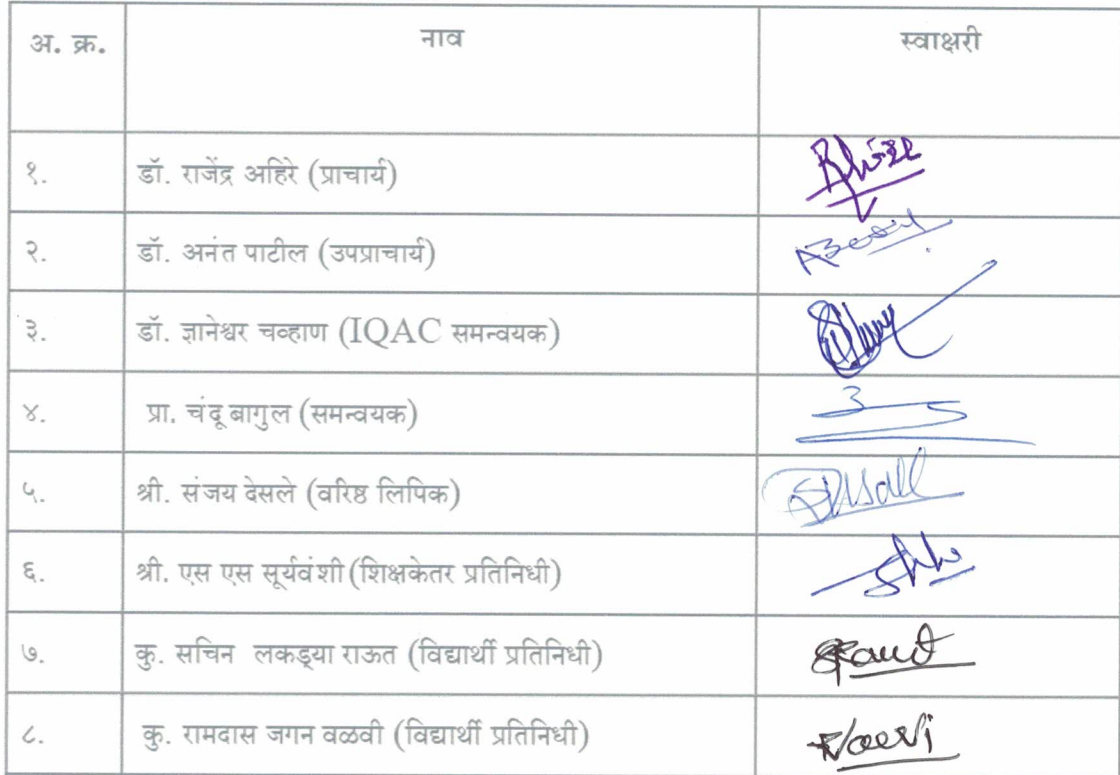 अ. क्र. नाव स्वाक्षरी
१. डॉ. राजेंद्र अहिरे (प्राचार्य)
२. डॉ. अनंत पाटील (उपप्राचार्य)
३. डॉ. ज्ञानेश्वर चव्हाण (IQAC समन्वयक)
४. प्रा. चंदू बागुल (समन्वयक)
५. श्री. संजय देसले (वरिष्ठ लिपिक)
६. श्री. एस एस सूर्यवंशी (शिक्षकेतर प्रतिनिधी)
७. कु. सचिन लकड्या राऊत (विद्यार्थी प्रतिनिधी)
८. कु. रामदास जगन वळवी (विद्यार्थी प्रतिनिधी)